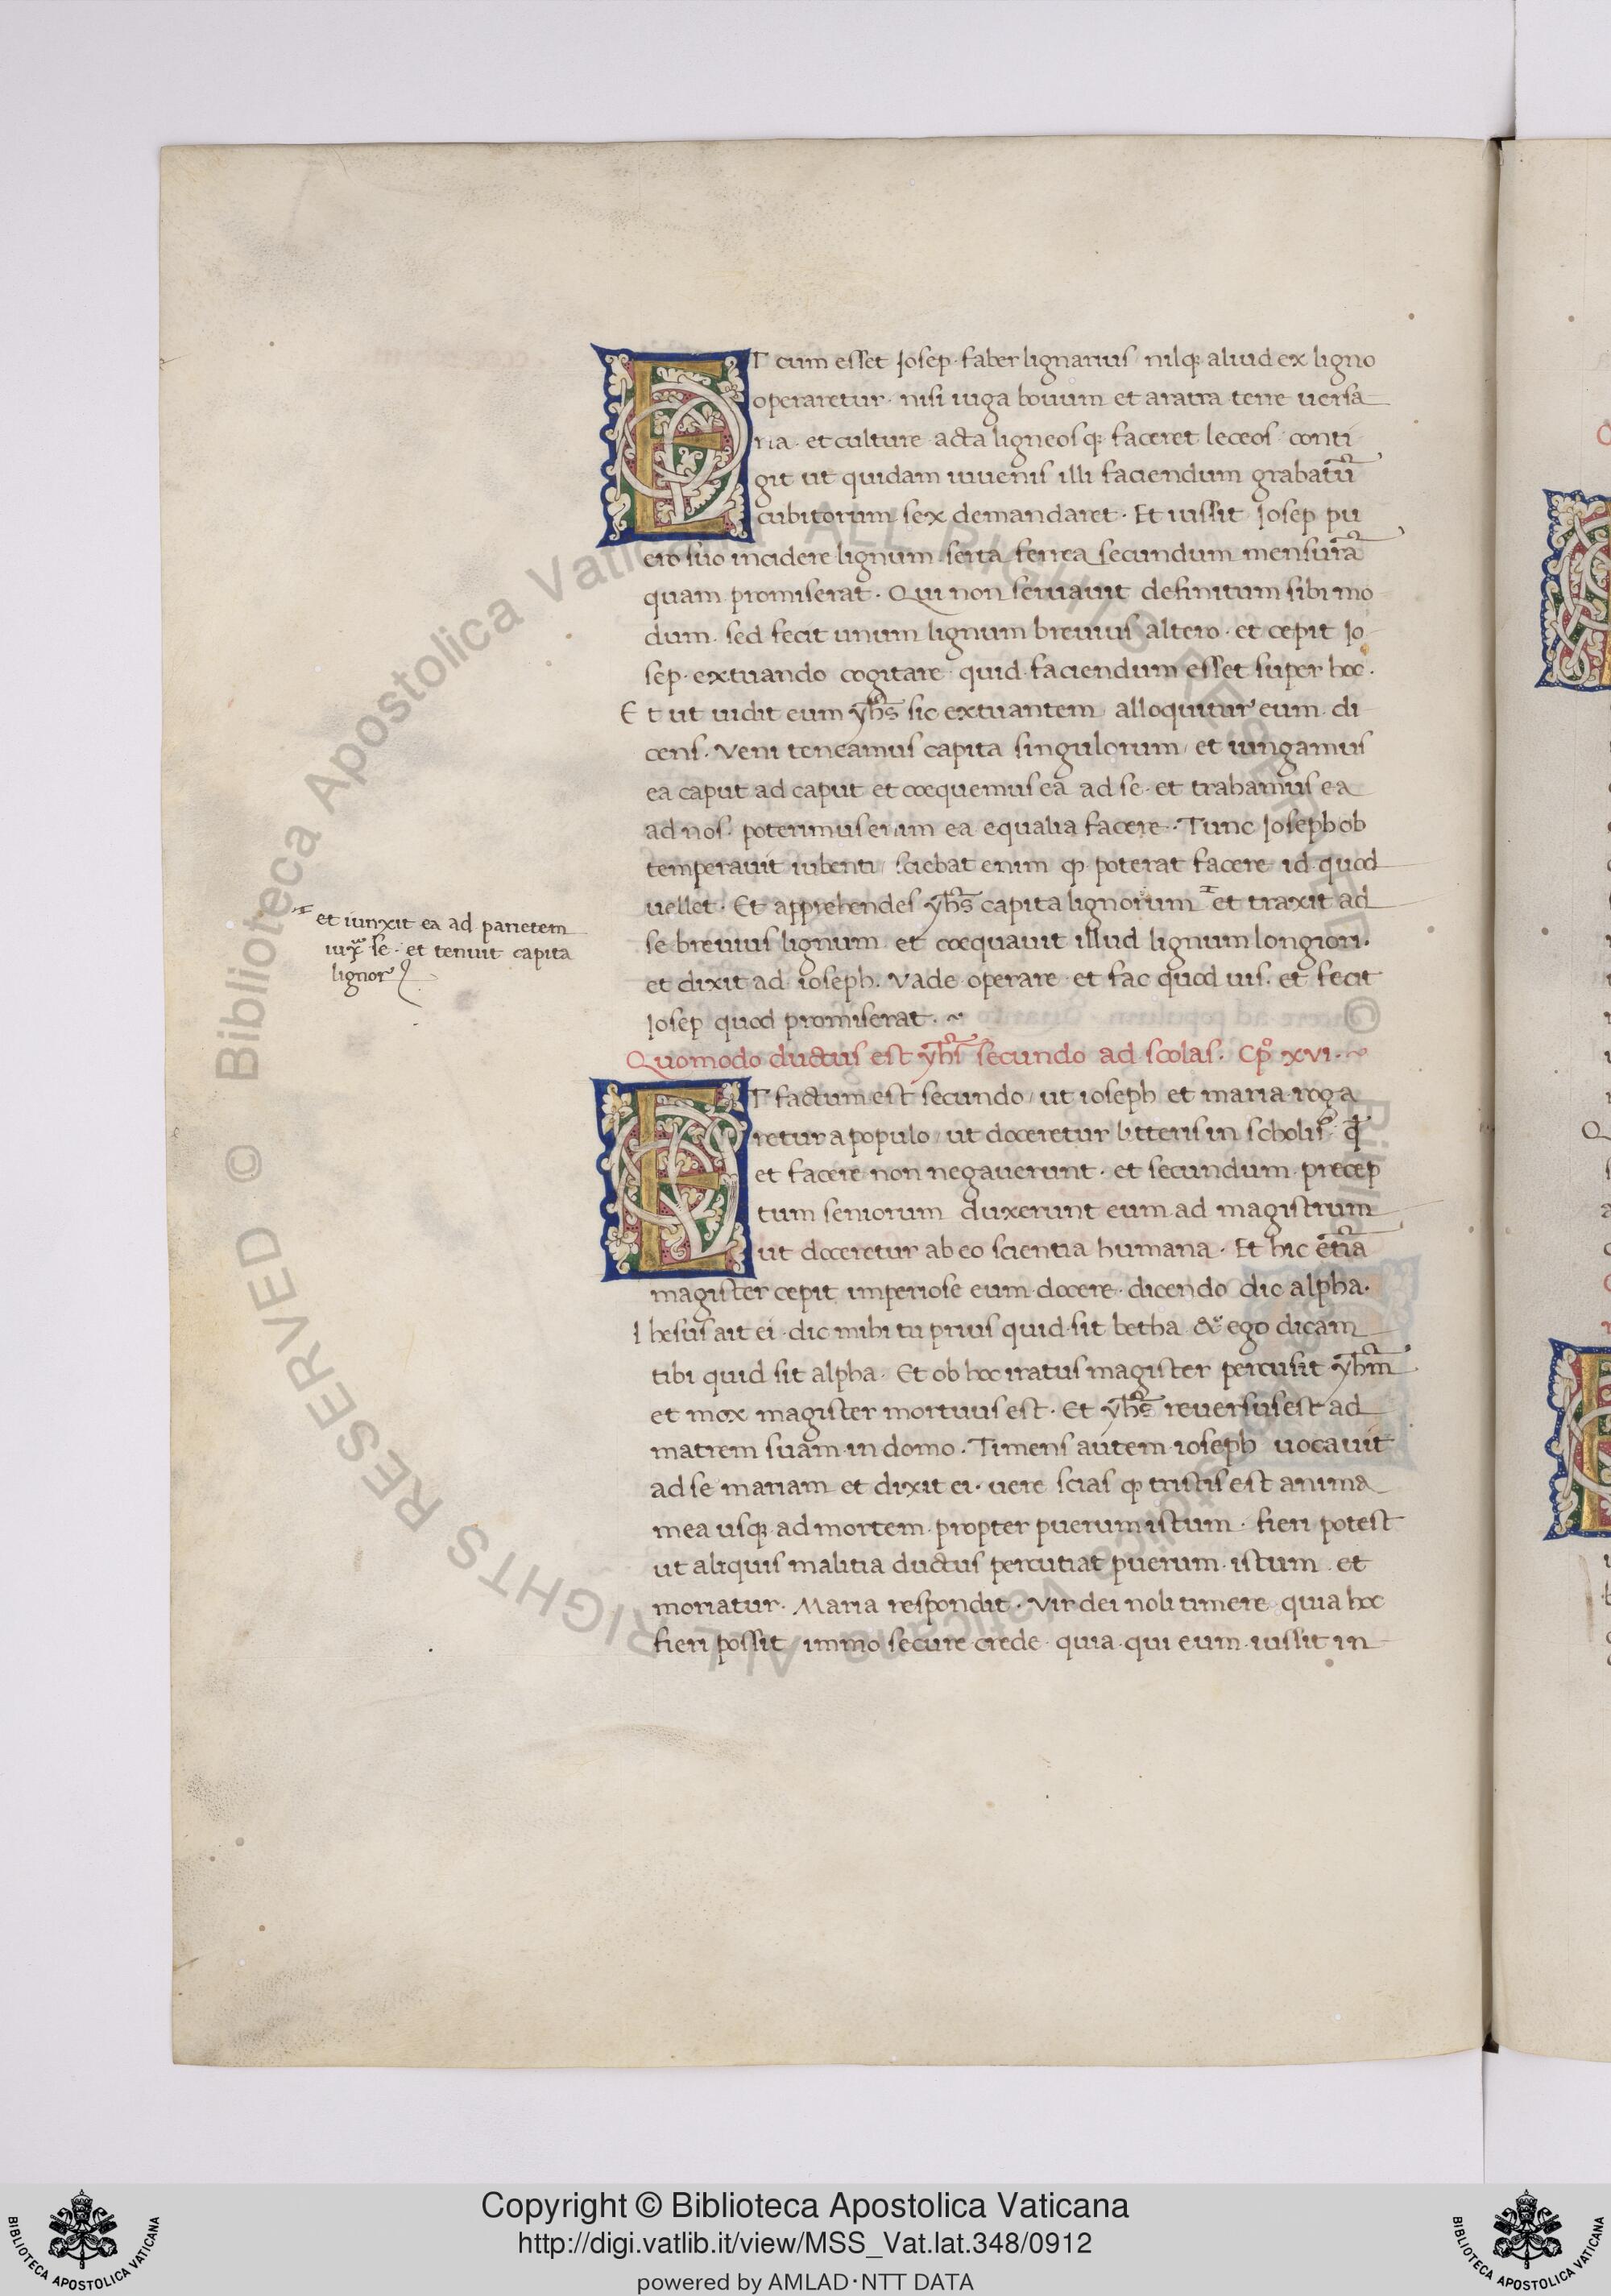 ET cum esset Josep faber lignarius nilq; aliud ex ligno
operaretur · nisi iuga bouum et aratra terre uersa
ria · et culture acta ligneosq; faceret leceos · conti
git ut quidam iuuenis illi faciendum grabatū
cubitorum sex demandaret · Et iussit Josep pu
ero suo incidere lignum serra ferrea secundum mensurā
quam promiserat · Qui non seruauit definitum sibi mo
dum · sed fecit unum lignum breuius altero · et cepit Jo
sep · extuando cogitare quid faciendum esset super hoc ·
Et ut uidit eum yhs̄ sic extuantem alloquitur eum di
cens · Veni teneamus capita singulorum / et iungamus
ea caput ad caput et coequemus ea ad se · et trahamus ea
ad nos · poterimus enim ea equalia facere · Tunc Joseph ob
temperauit iubenti / sciebat enim ꝙ poterat facere id quod
uellet · Et apprehendes yhs̄ capita lignorum et traxit ad
se breuius lignum et coequauit illud lignum longiori ·
et dixit ad ioseph · Vade operare et fac quod uis · et fecit
Josep quod promiserat ·
et iunxit ea ad parietem
iux̄ se · et tenuit capita
lignorꝝ
Quomodo ductus est yhs̄ secundo ad scolas · Cp̊ xvi ·
ET factum est secundo / ut ioseph et maria roga
retur a populo / ut doceretur litteris in scholis · qđ
et facere non negauerunt · et secundum precep
tum seniorum duxerunt eum ad magistrum
ut doceretur ab eo scientia humana · Et hic etiā
magister cepit imperiose eum docere · dicendo dic alpha ·
Ihesus ait ei · dic mihi tu prius quid sit betha & ego dicam
tibi quid sit alpha · Et ob hoc iratus magister percusit yhm̄
et mox magister mortuus est · Et yhs̄ reuersus est ad
matrem suam in domo · Timens autem ioseph uocauit
ad se mariam et dixit ei · uere scias ꝙ tristis est anima
mea usq; ad mortem propter puerum istum · fieri potest
ut aliquis malitia ductus percutiat puerum istum · et
moriatur · Maria respondit · Vir dei noli timere quia hoc
fieri possit immo secure crede · quia qui eum iussit in
© Biblioteca Apostolica Vaticana ALL RIGHTS RESERVED
Copyright © Biblioteca Apostolica Vaticana
http://digi.vatlib.it/view/MSS_Vat.lat.348/0912
powered by AMLAD·NTT DATA
BIBLIOTECA APOSTOLICA VATICANA
BIBLIOTECA APOSTOLICA VATICANA